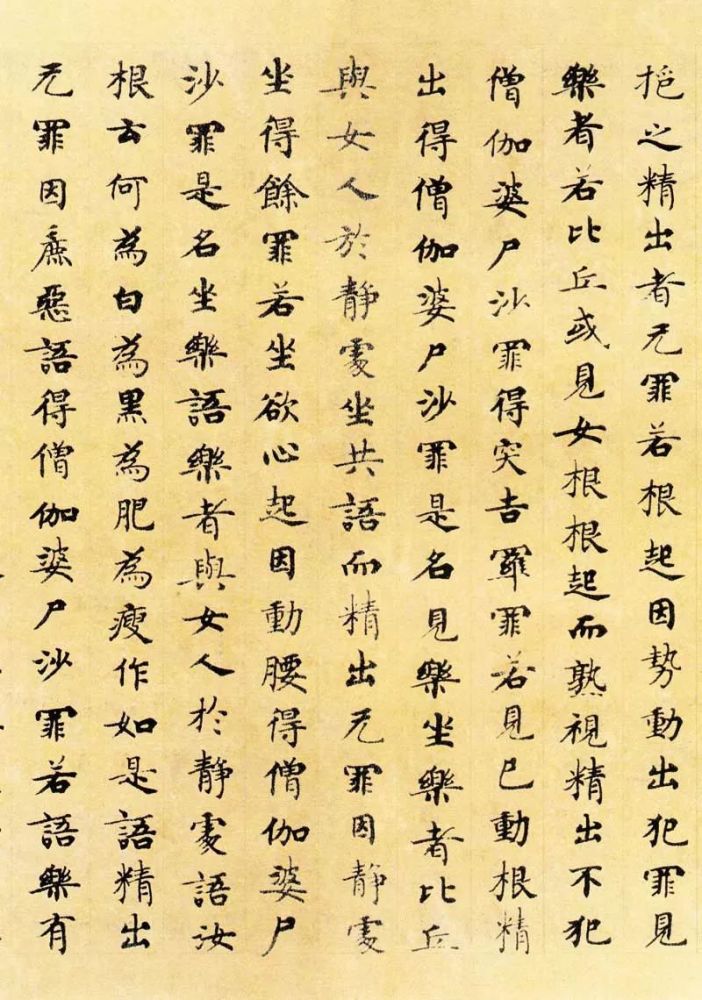 挹之精出者无罪若根起因势動出犯罪見
樂者若比丘或見女根根起而熟視精出不犯
僧伽婆尸沙罪得突吉羅罪若見已動根精
出得僧伽婆尸沙罪是名見樂坐樂者比丘
與女人於静處坐共語而精出无罪因静處
坐得餘罪若坐欲心起因動腰得僧伽婆尸
沙罪是名坐樂語樂者與女人於静處語汝
根云何為白為黑為肥為瘦作如是語精出
无罪因麁惡語得僧伽婆尸沙罪若語樂有